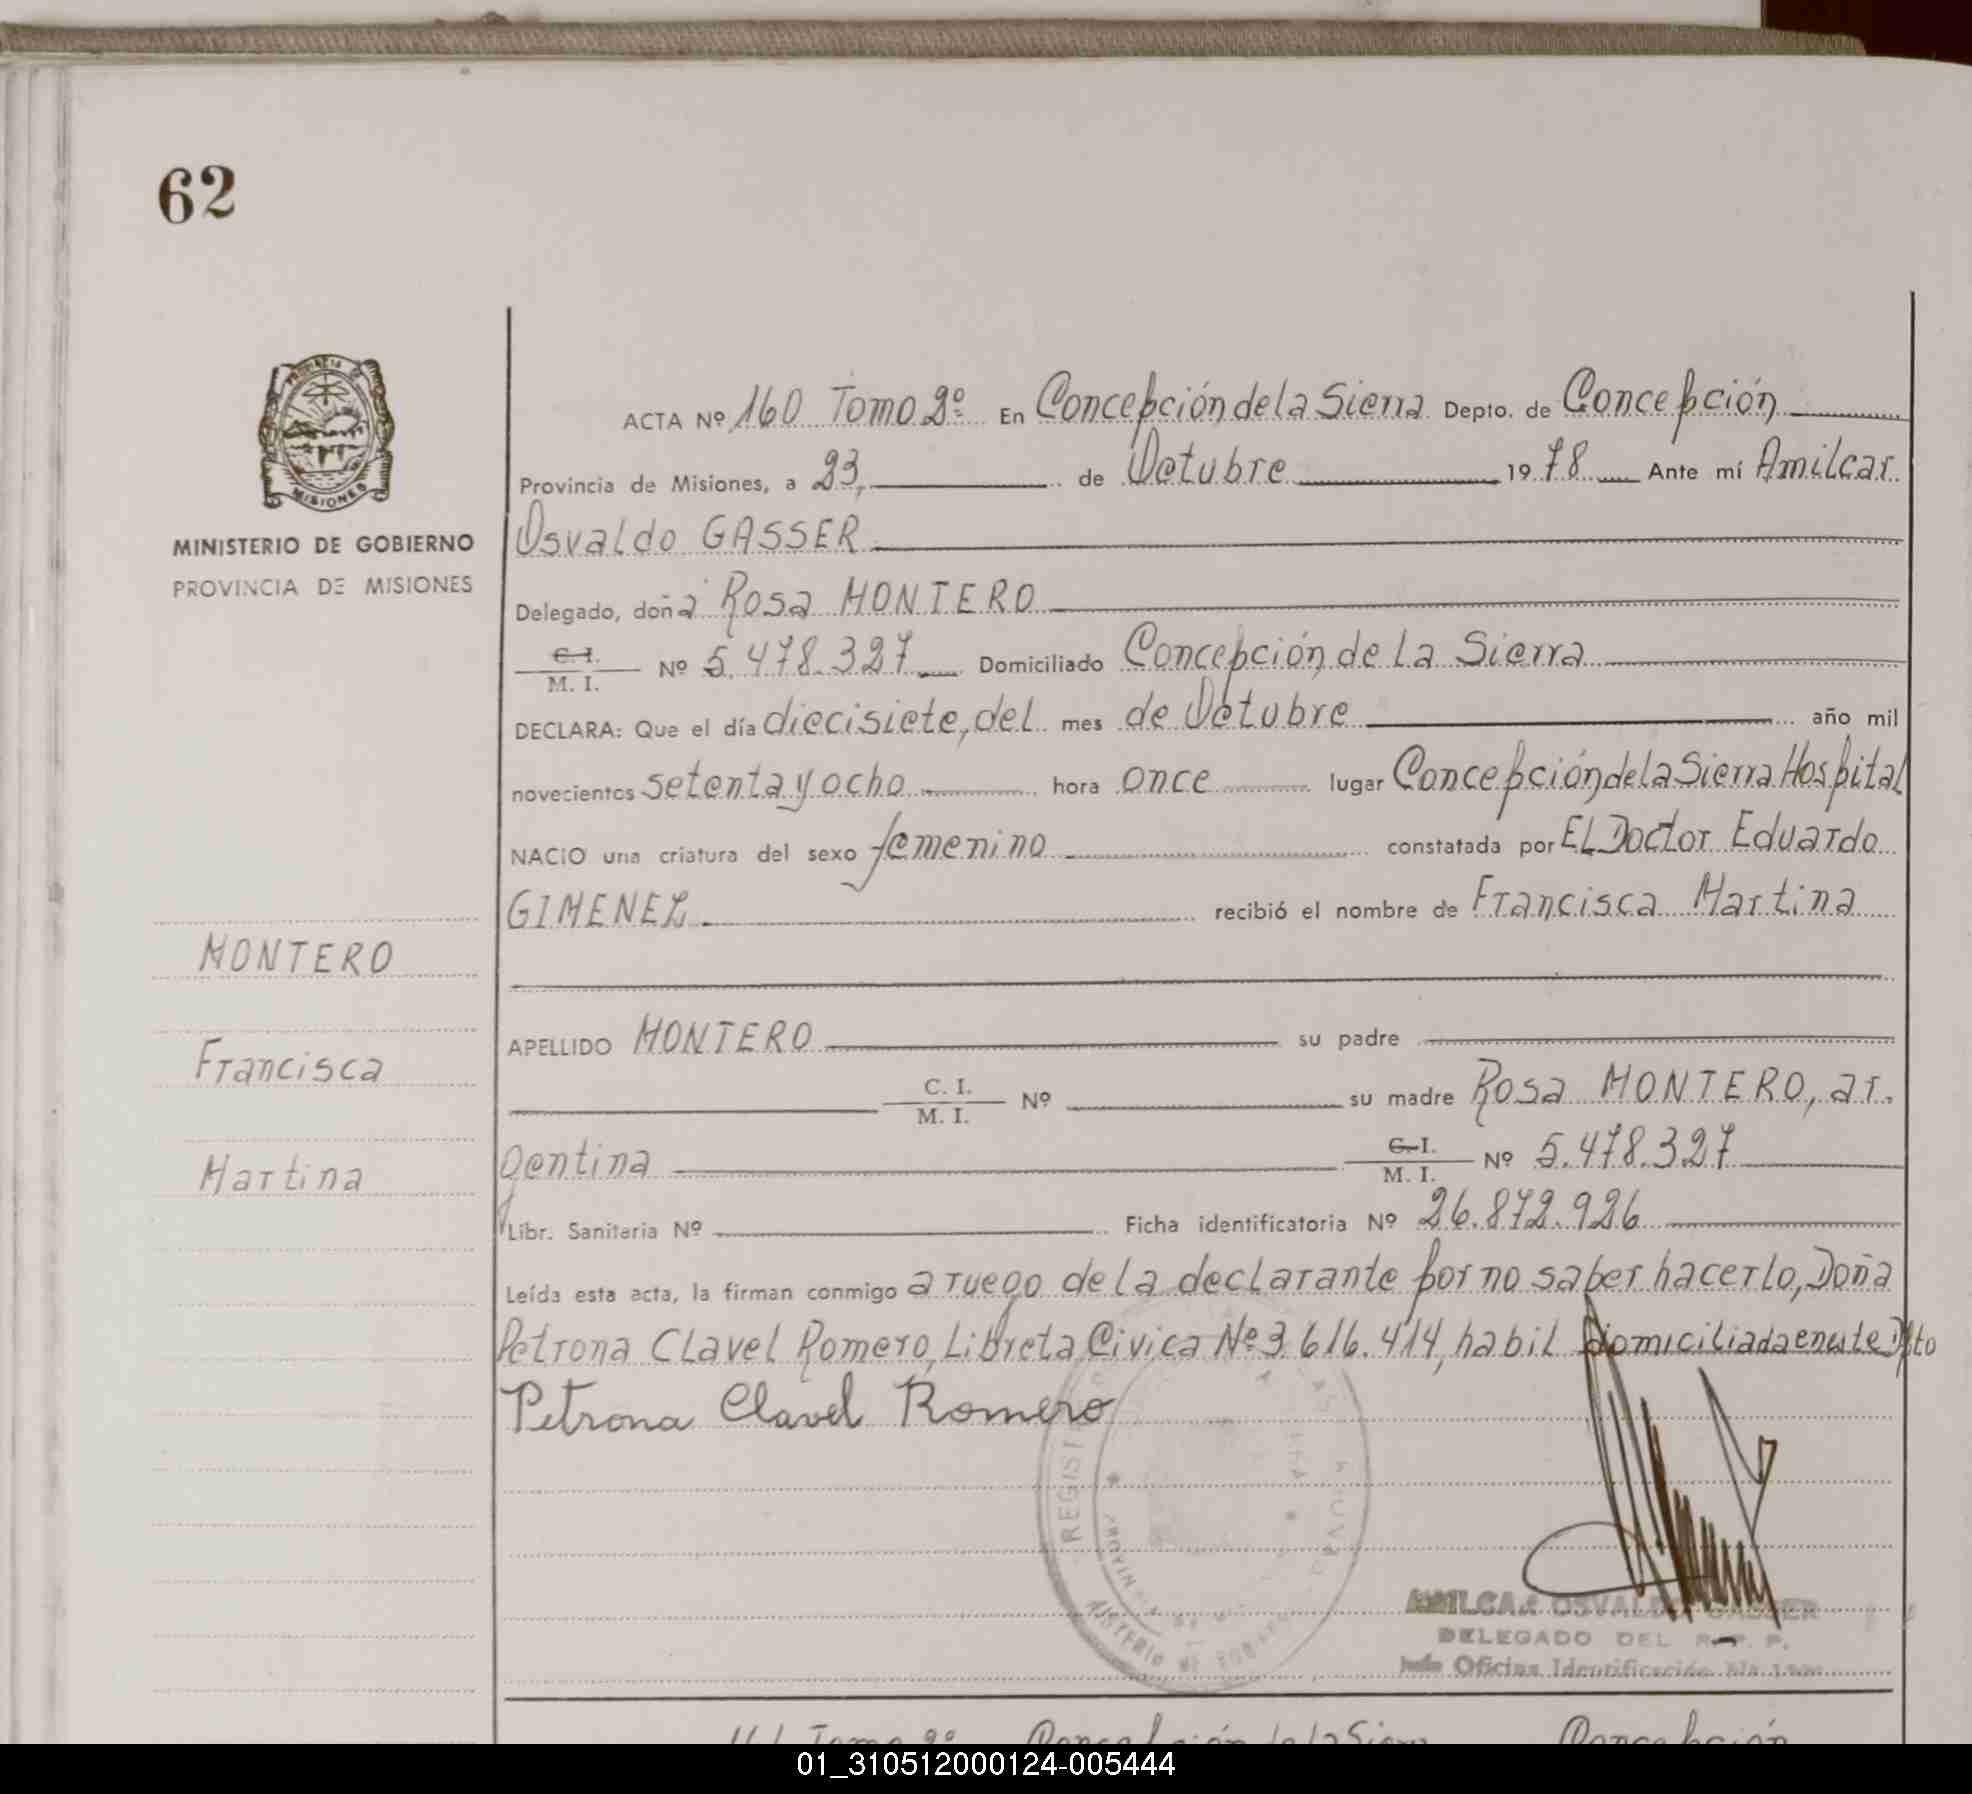 62
PROVINCIA DE
MISIONES
MINISTERIO DE GOBIERNO
PROVINCIA DE MISIONES
MONTERO
Francisca
Martina
ACTA Nº 160 Tomo 2º En Concepción de la Sierra Depto. de Concepción
Provincia de Misiones, a 23, de Octubre 1978 Ante mí Amilcar
Osvaldo GASSER
Delegado, doña Rosa MONTERO
C. I. / M. I. Nº 5.478.327 Domiciliado Concepción de La Sierra
DECLARA: Que el día diecisiete, del mes de Octubre año mil
novecientos setenta y ocho hora once lugar Concepción de la Sierra Hospital
NACIO una criatura del sexo femenino constatada por EL Doctor Eduardo
GIMENEZ recibió el nombre de Francisca Martina
APELLIDO MONTERO su padre
C. I. / M. I. Nº su madre Rosa MONTERO, ar.
gentina C. I. / M. I. Nº 5.478.327
Libr. Sanitaria Nº Ficha identificatoria Nº 26.872.926
Leída esta acta, la firman conmigo a ruego de la declarante por no saber hacerlo, Doña
Petrona Clavel Romero, Libreta Civica Nº 3.616.414, habil domiciliada en este Dpto
Petrona Clavel Romero
REGIST
AMILCAR OSVALDO GASSER
DELEGADO DEL R. P. P.
Oficina Identificación
161 Tomo 2º Concepción de la Sierra Concepción
01_310512000124-005444